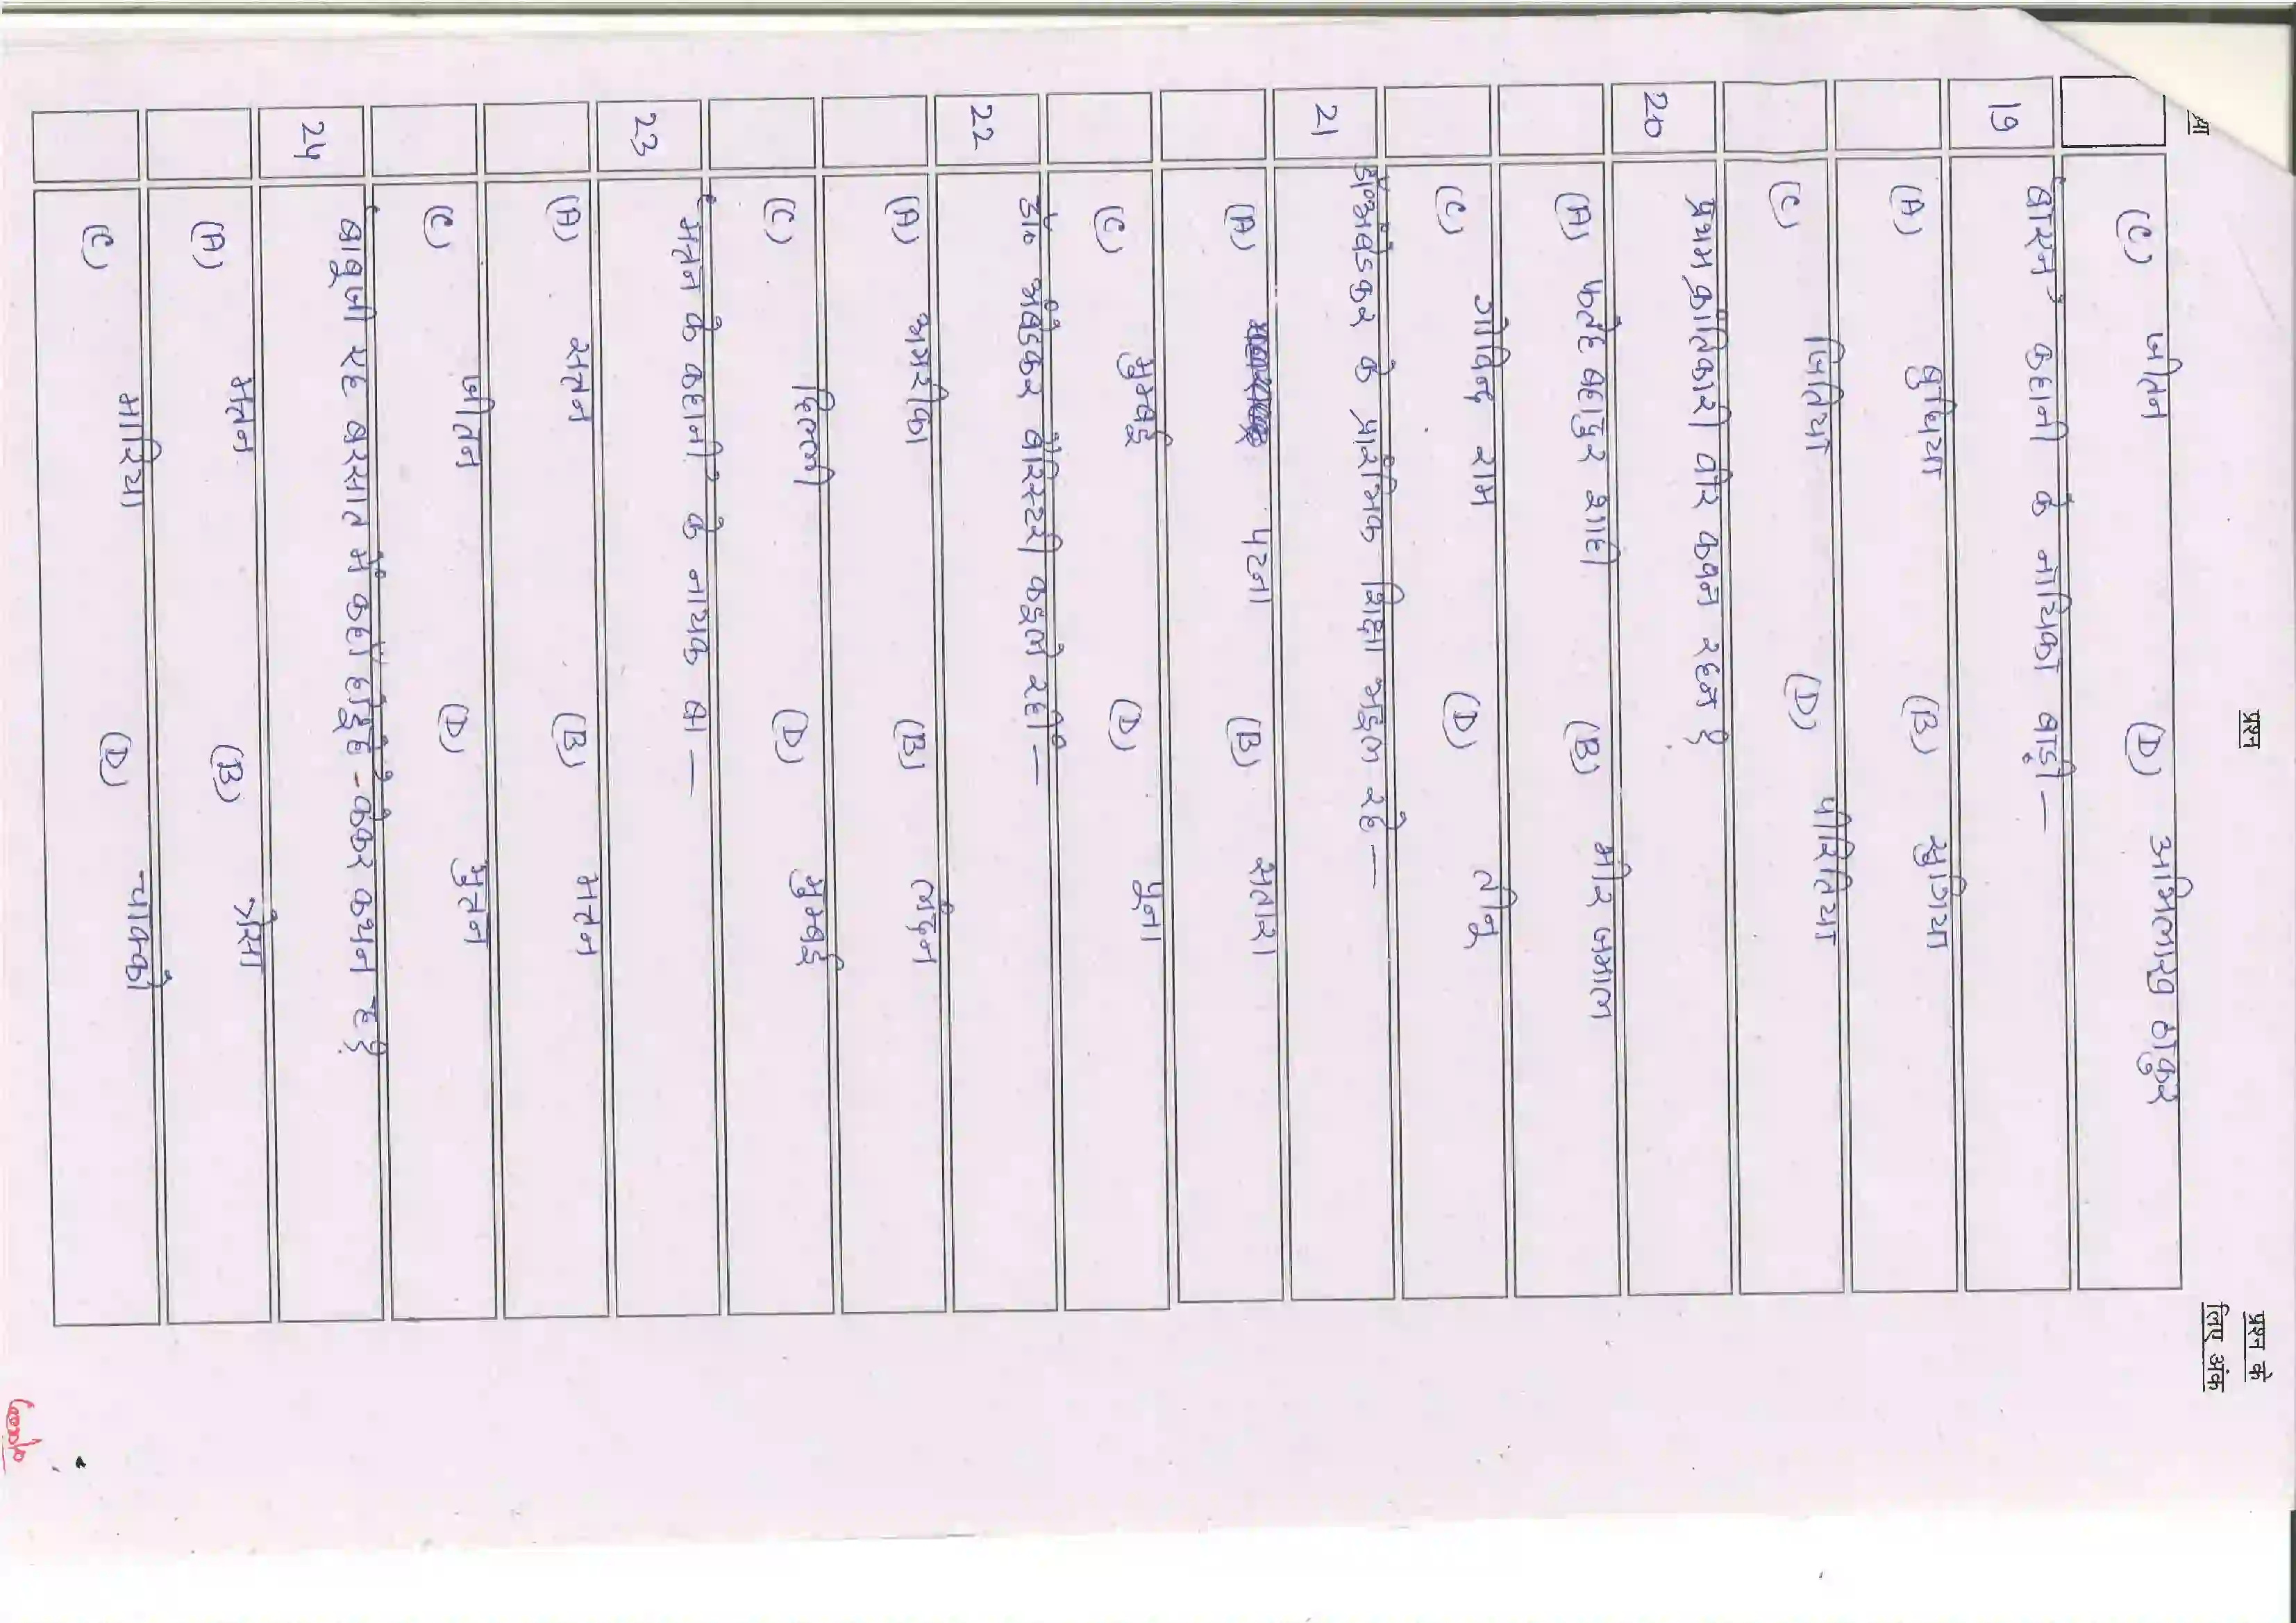 प्रश्न
प्रश्न के
लिए अंक
(C) जीतन (D) अभिलाख ठाकुर
19 "बारन" कहानी के नायिका बाड़ी —
(A) बुधिया (B) सुगिया
(C) जितिया (D) पीरितिया
20 प्रथम क्रांतिकारी वीर कवन रहन हैं
(A) फतेह बहादुर शाही (B) मीर जमाल
(C) गोविन्द राम (D) लीनू
21 डॉ० अंबेडकर के प्रारंभिक शिक्षा भइल रहे —
(A) पटना (B) सतारा
(C) मुम्बई (D) पूना
22 डॉ० अंबेडकर बारिस्टरी कइले रहीं —
(A) अमरीका (B) लंदन
(C) दिल्ली (D) मुम्बई
23 "मतन के कहानी" के नायक बा —
(A) सतन (B) मतन
(C) जीतन (D) भुतन
24 "बाबूजी रह बरसात में कहाँ होइहें" - केकर कथन ह हैं
(A) मतन (B) गेसा
(C) मारिया (D) चाकको